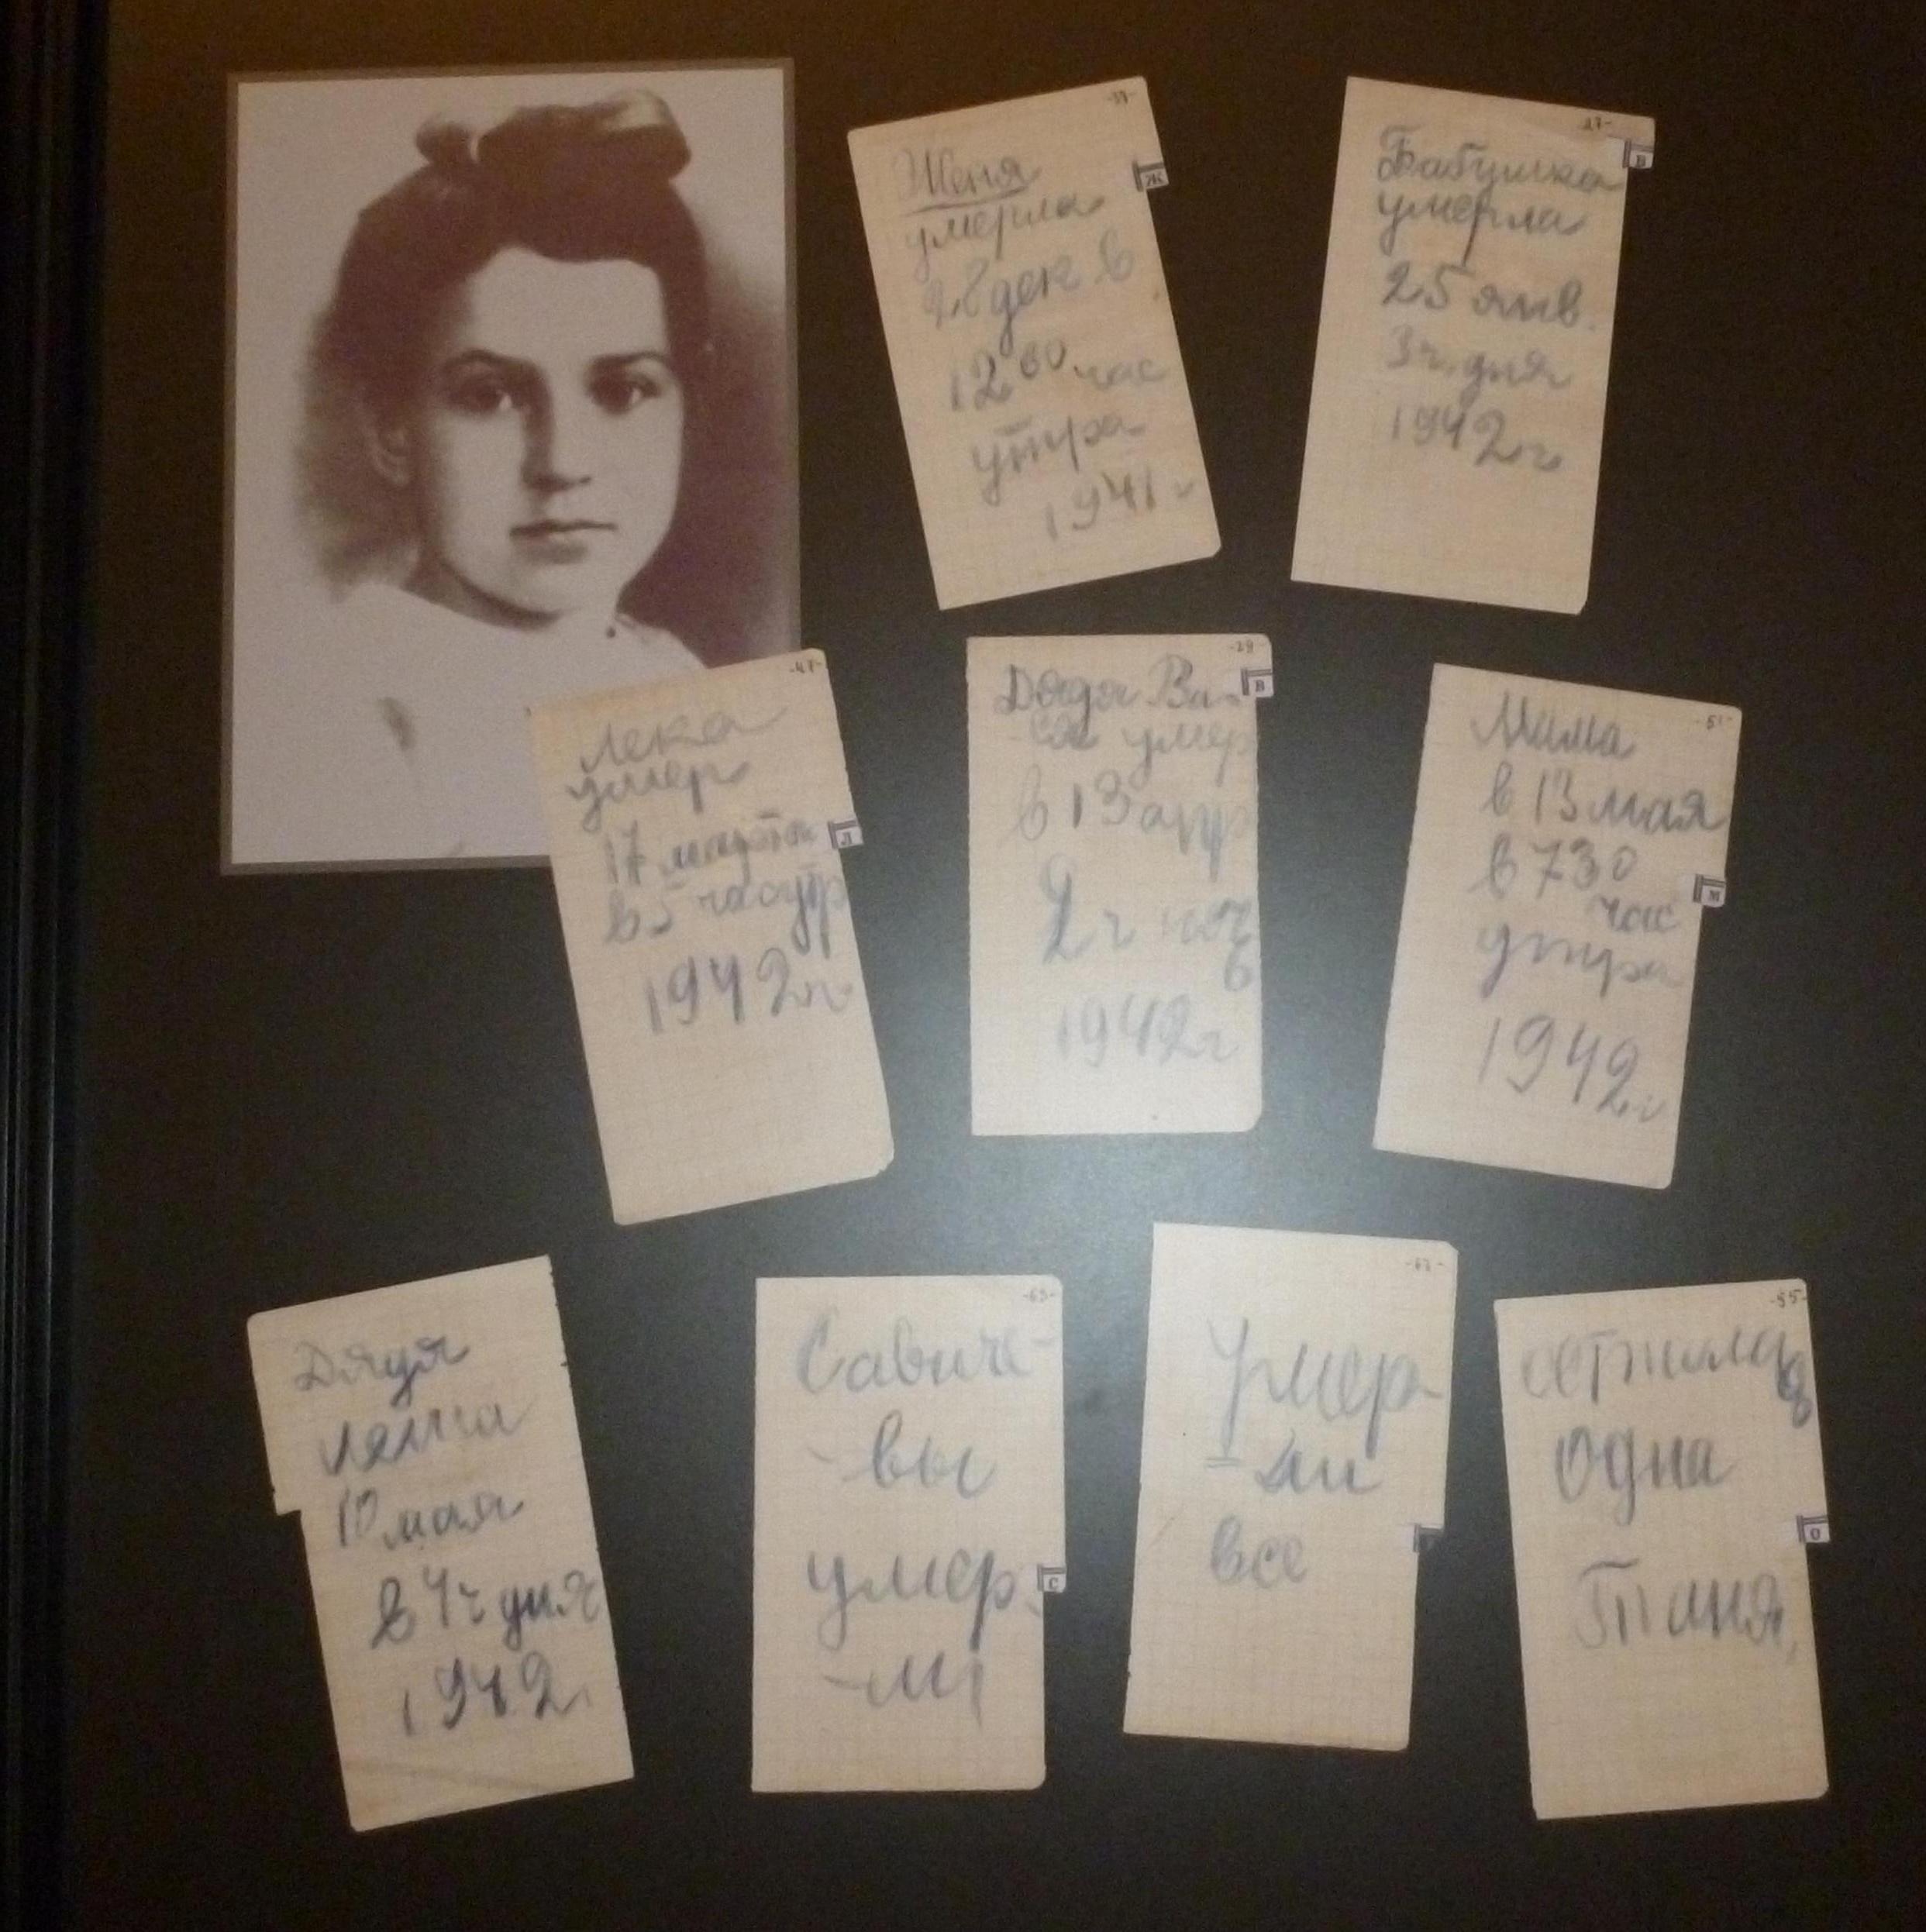 -37-
Ж
Женя
умерла
28 дек в
12 00 час
утра
1941 г
-27-
Б
Бабушка
умерла
25 янв.
3 ч. дня
1942 г
-47-
Л
Лека
умер
17 марта
в 5 час утр
1942 г
-29-
В
Дядя Ва-
ся умер
в 13 апр
2 ч ноч
ь
1942 г
-51-
М
Мама
в 13 мая
в 730
час
утра
1942 г
Дядя
Леша
10 мая
в 4 ч дня
1942 г
-63-
С
Савиче-
-вы
умер-
-ли
-67-
Умер-
-ли
все
-55-
О
осталась
одна
Таня